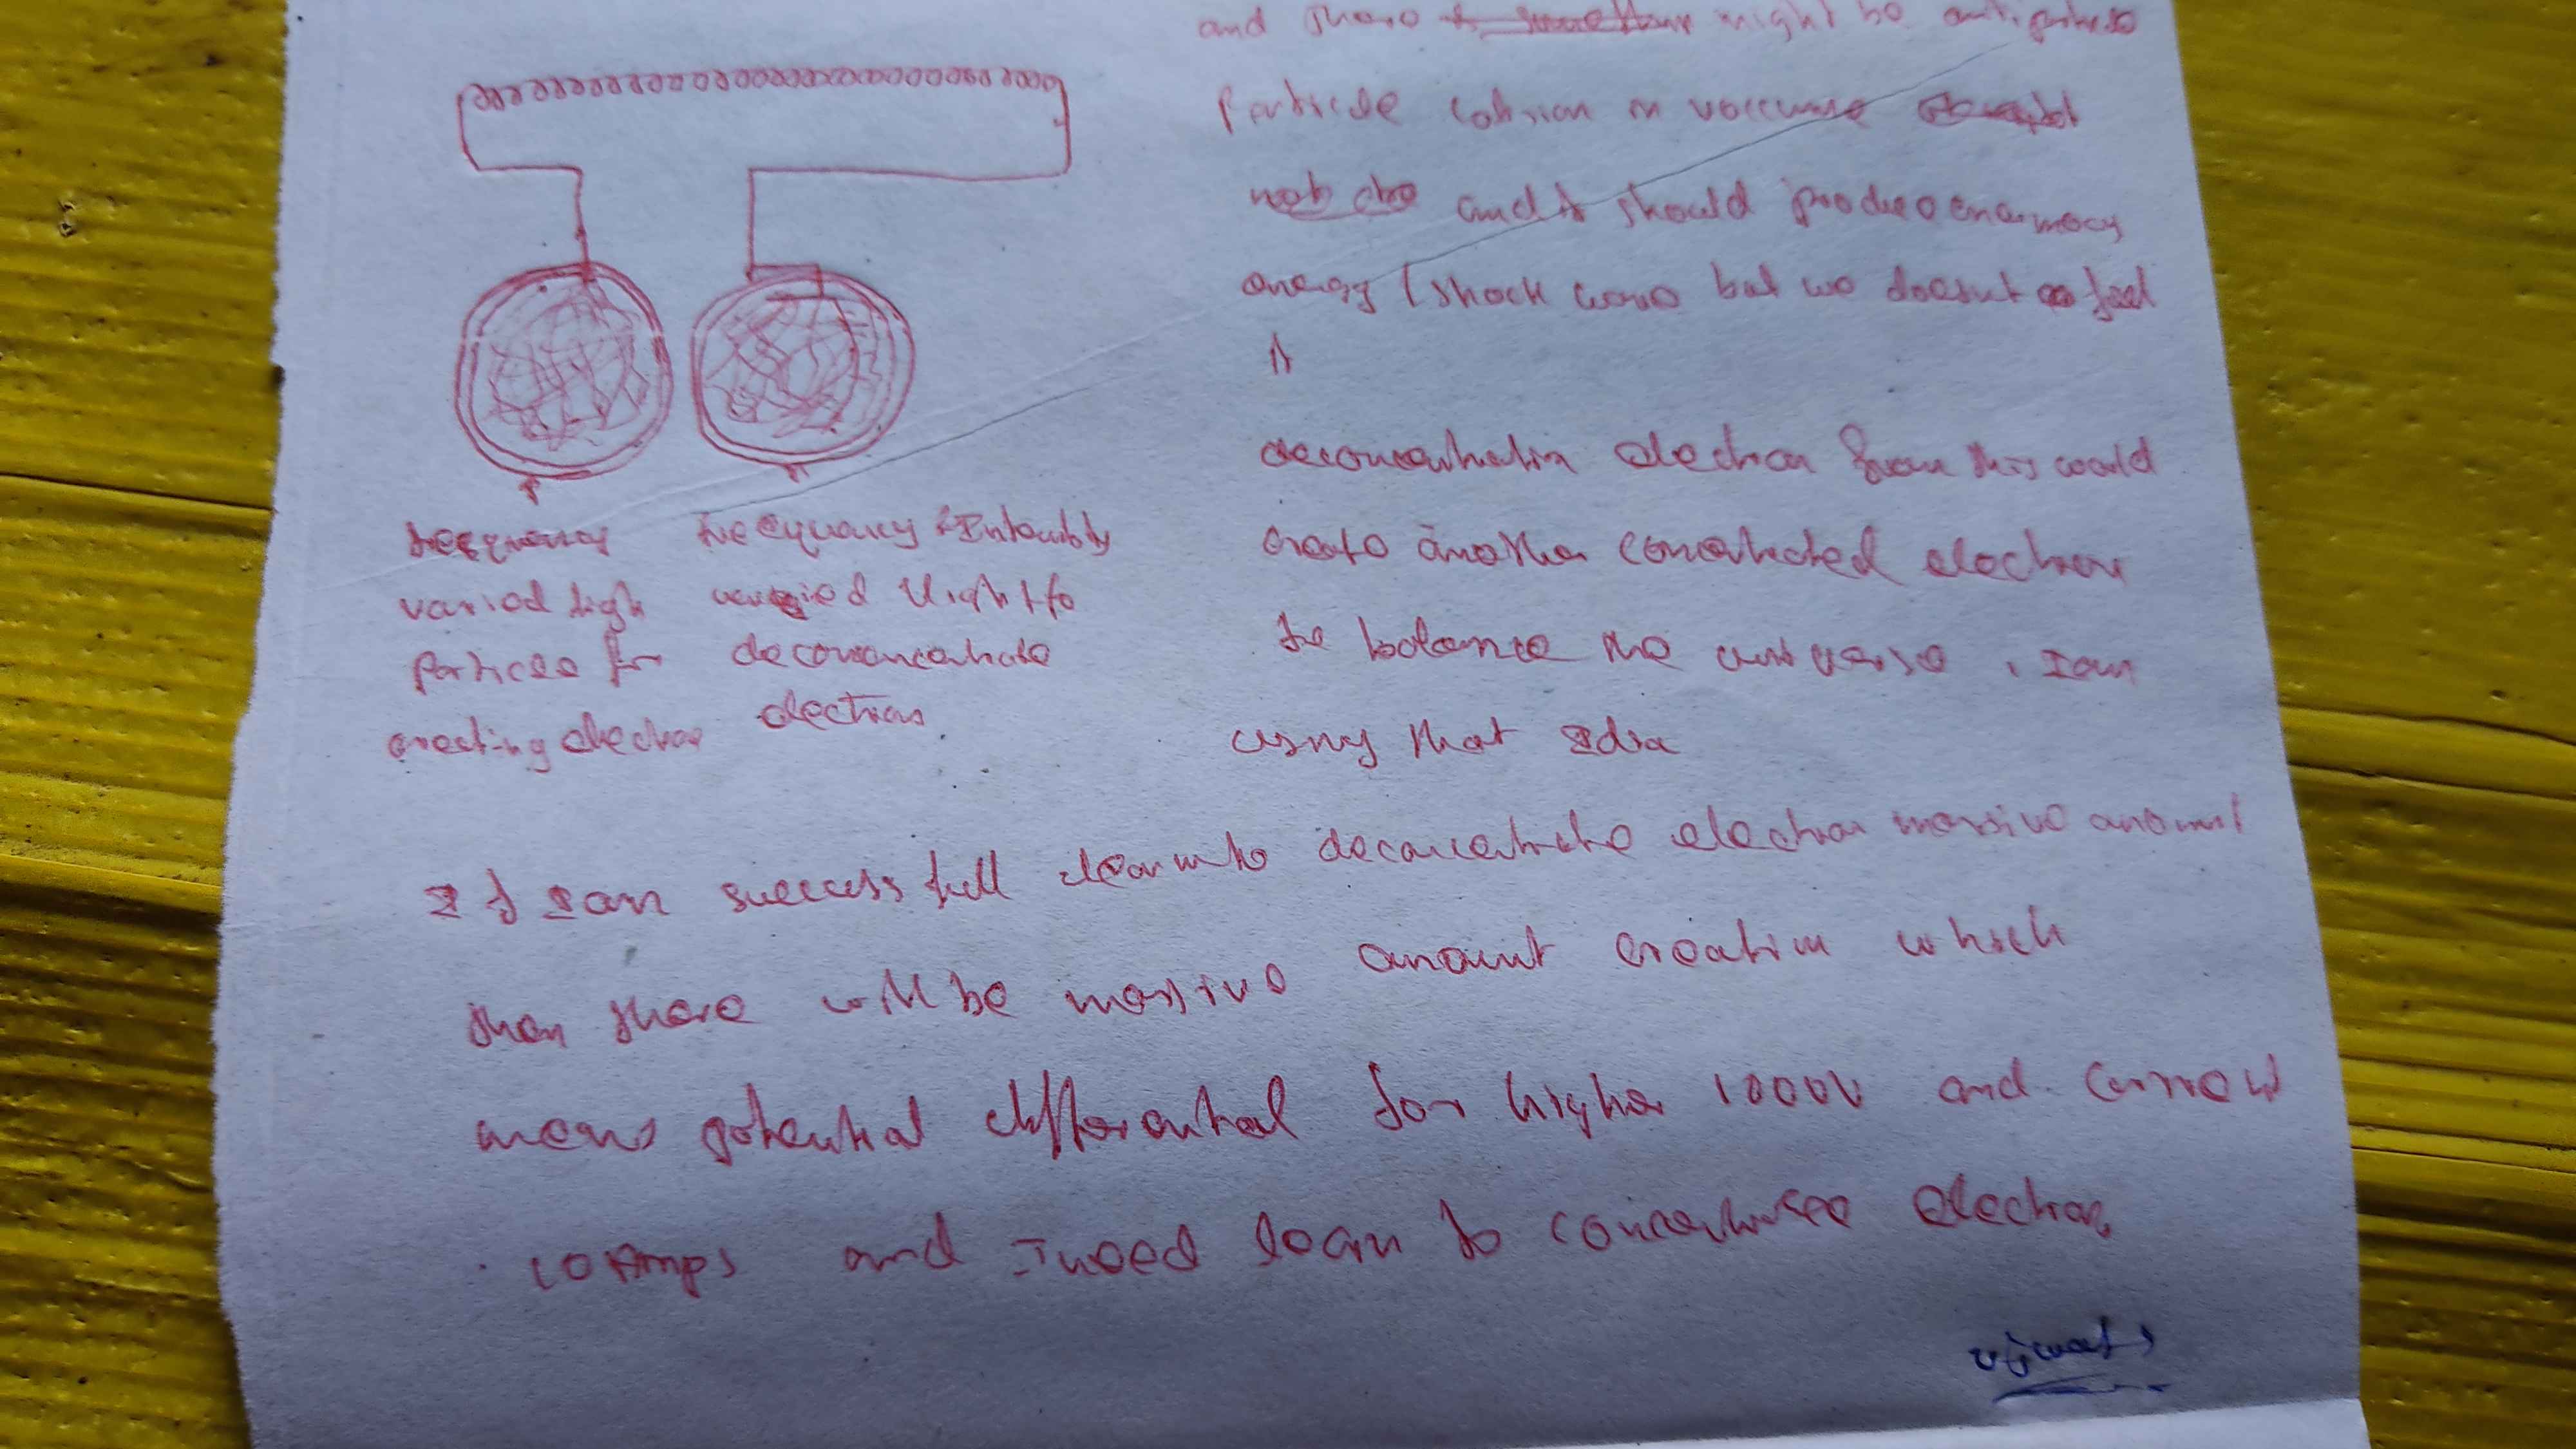 and there might be anti
Particle in vaccume
and it should produce enarmocy
energy (shock wave but we doesnt feel
it
deconcentratin electron from this would
create another concentrated electron
to balance the universe , I am
using that Idia
frequency
varied ligh
particles for
creating electron
frequency & Intensity
varied light to
deconcentrate
electrons
If I am success full to deconcentrate electron massive amount
then there will be massive amount creation which
means potential differential for higher 1000V and
10 Amps and I need learn to electron